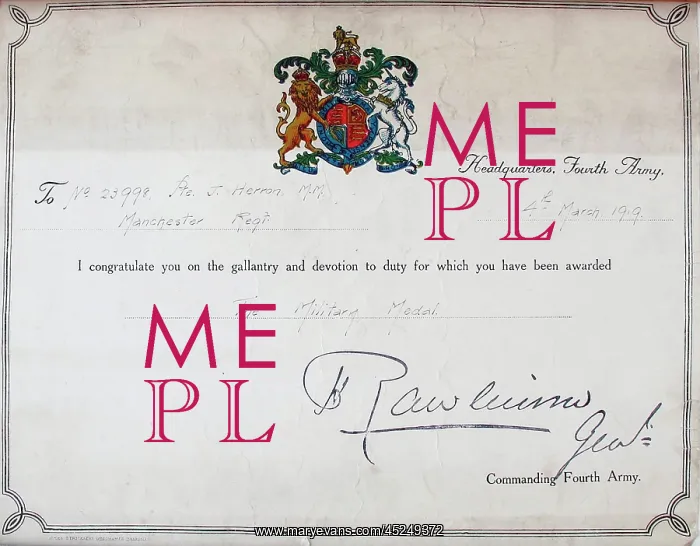 Headquarters, Fourth Army.
To No. 23998, Pte. J. Herron, M.M.
Manchester Regt.
4th March 1919.
I congratulate you on the gallantry and devotion to duty for which you have been awarded
The Military Medal.
H Rawlinson
Genl:
Commanding Fourth Army.
ME
PL
ME
PL
www.maryevans.com/45249372